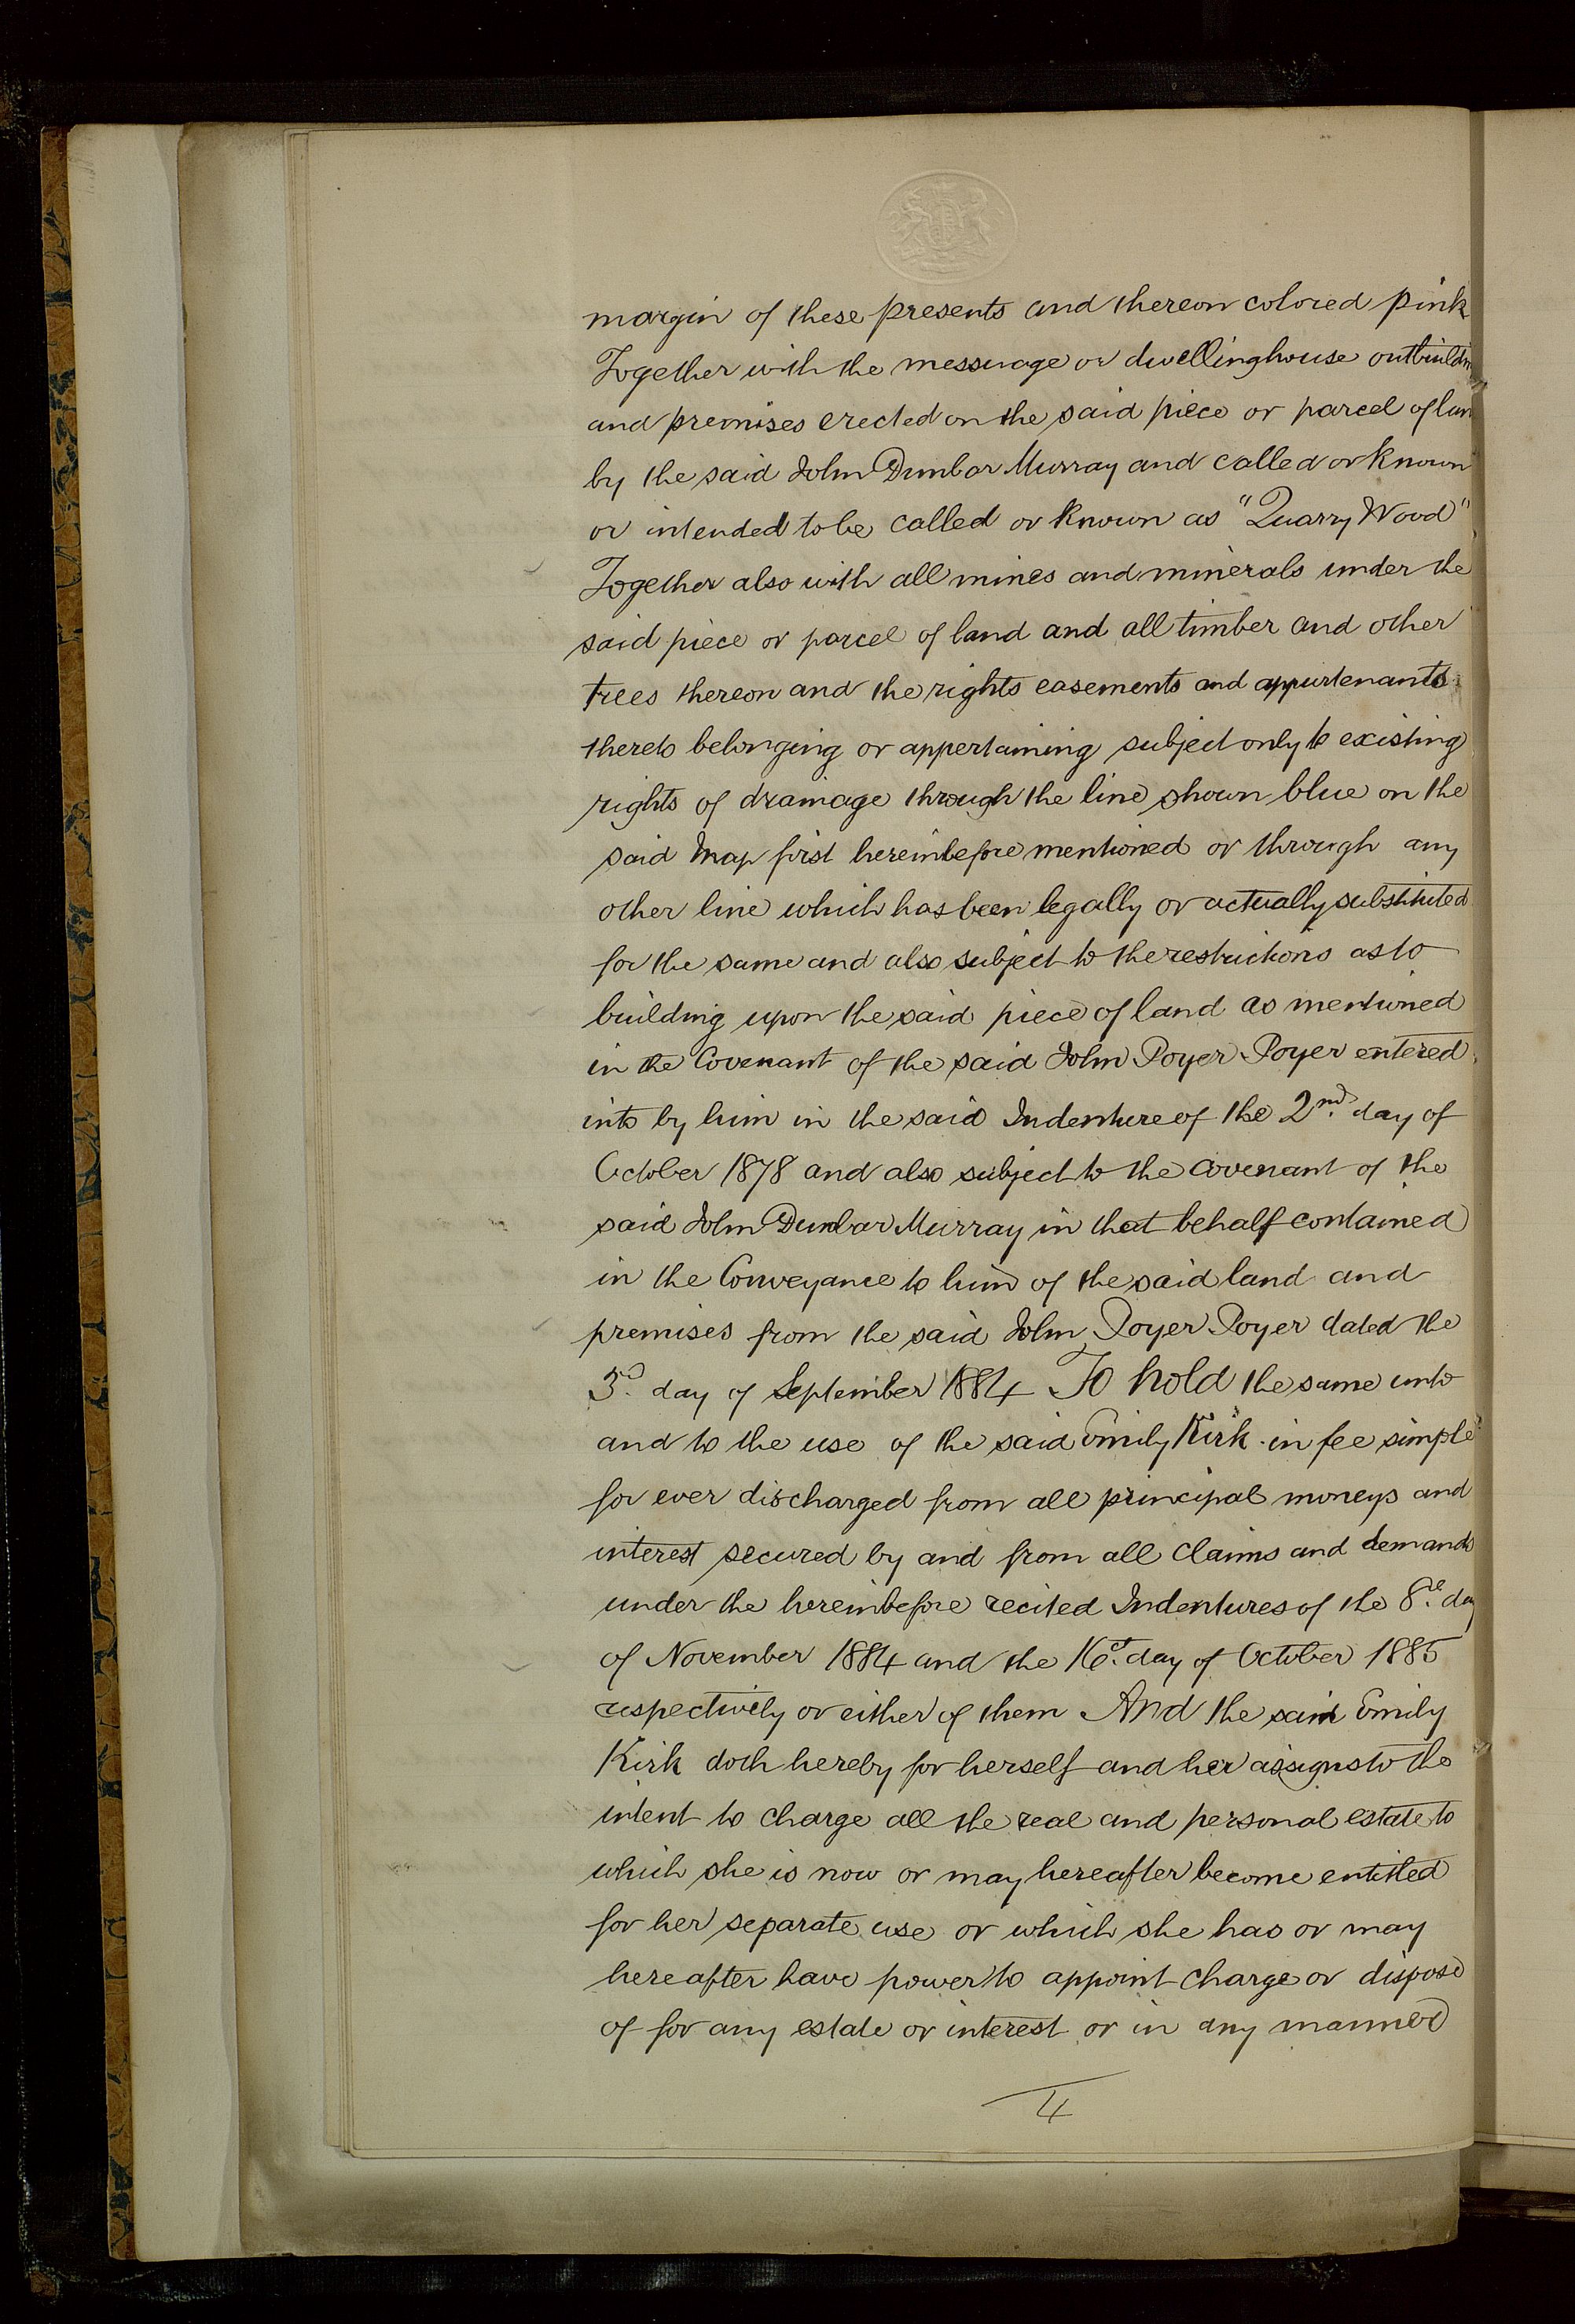 margin of these presents and thereon colored pink
Together with the messuage or dwellinghouse outbuildin
and premises erected on the said piece or parcel of lan
by the said John Dunbar Murray and called or known
or intended to be called or known as "Quarry Wood"
Together also with all mines and minerals under the
said piece or parcel of land and all timber and other
trees thereon and the rights easements and appurtenants
thereto belonging or appertaining subject only to existing
rights of drainage through the line shown blue on the
said Map first hereinbefore mentioned or through any
other line which has been legally or actually substituted
for the same and also subject to the restrictions as to
building upon the said piece of land as mentioned
in the Covenant of the said John Poyer Poyer entered
into by him in the said Indenture of the 2nd. day of
October 1878 and also subject to the covenant of the
said John Dunbar Murray in that behalf contained
in the Conveyance to him of the said land and
premises from the said John Poyer Poyer dated the
3d. day of September 1884 To hold the same unto
and to the use of the said Emily Kirk in fee simple
for ever discharged from all principal moneys and
interest secured by and from all claims and demands
under the hereinbefore recited Indentures of the 8th. day
of November 1884 and the 16th. day of October 1885
respectively or either of them And the said Emily
Kirk doth hereby for herself and her assigns to the
intent to charge all the real and personal estate to
which she is now or may hereafter become entitled
for her separate use or which she has or may
hereafter have power to appoint charge or dispose
of for any estate or interest or in any manner
4